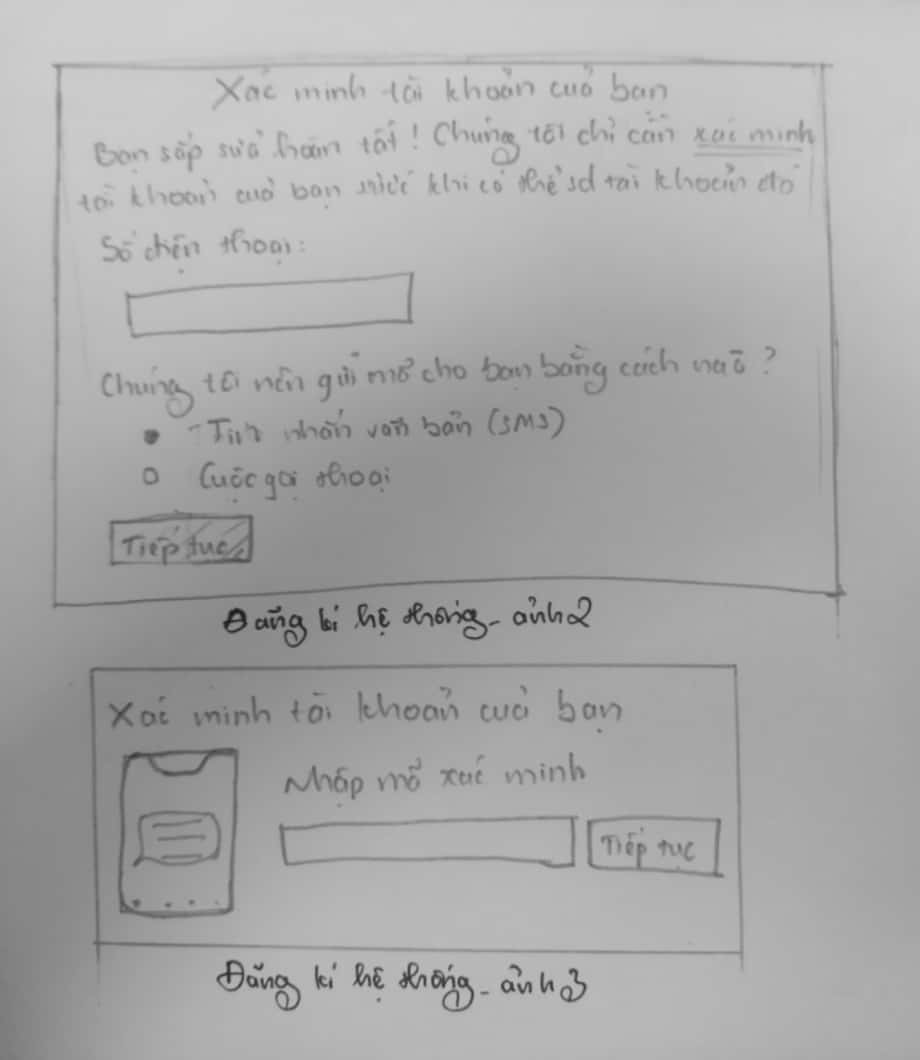 Xác minh tài khoản cuả bạn
Bạn sắp sửa hoàn tất! Chúng tôi chỉ cần xác minh
tài khoản cuả bạn trước khi có thể sd tài khoản đó
Số điện thoại:
Chúng tôi nên gửi mã cho bạn bằng cách nào?
Tin nhắn văn bản (SMS)
Cuộc gọi thoại
Tiếp tục
Đăng kí hệ thống_ ảnh 2
Xác minh tài khoản cuả bạn
Nhập mã xác minh
Tiếp tục
Đăng kí hệ thống_ ảnh 3